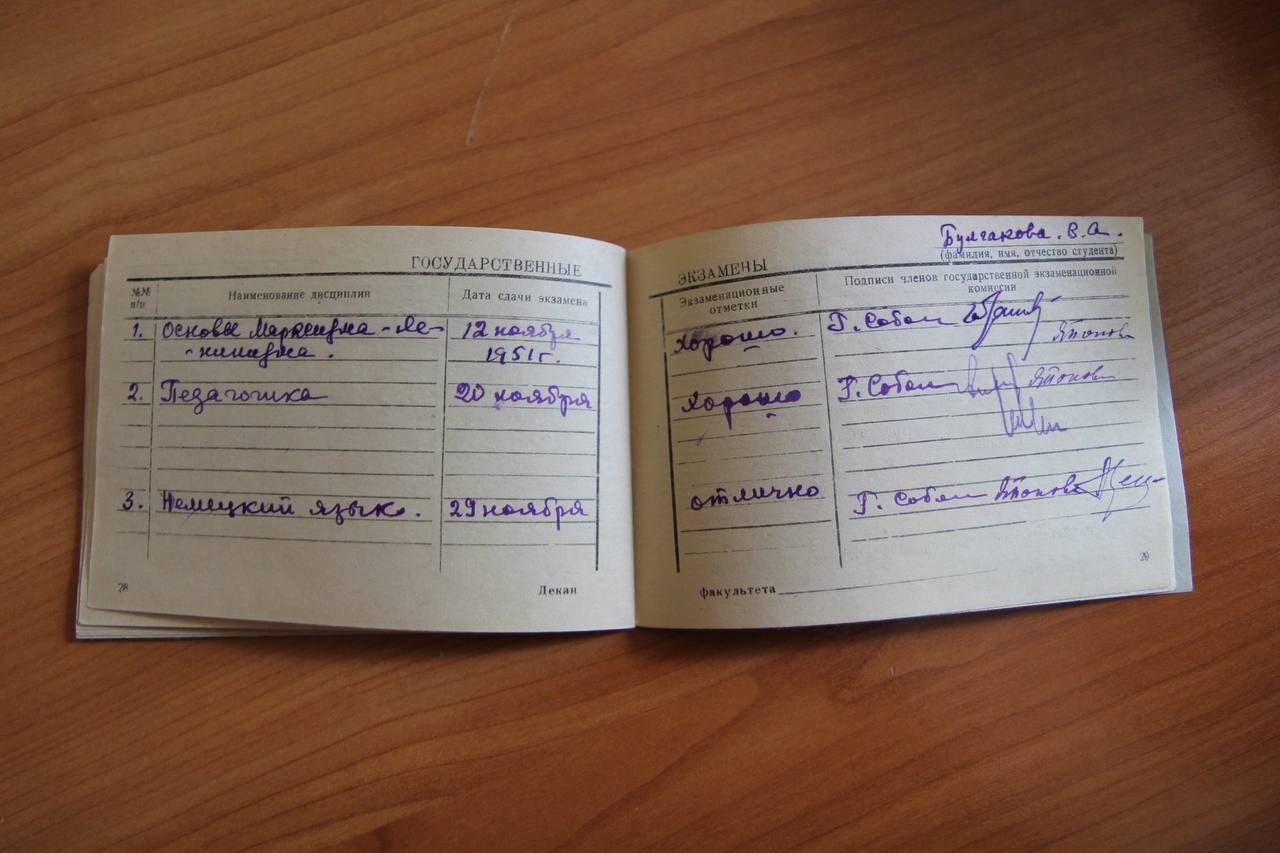 ГОСУДАРСТВЕННЫЕ
№№ п/п
Наименование дисциплин
Дата сдачи экзамена
1. Основы Марксизма-Ле-
12 ноября
-нинизма.
1951 г.
2. Педагогика
20 ноября
3. Немецкий язык.
29 ноября
28
Декан
Булгакова. В. А.
(фамилия, имя, отчество студента)
ЭКЗАМЕНЫ
Экзаменационные отметки
Подписи членов государственной экзаменационной
комиссии
Хорошо.
Хорошо
отлично
факультета
29